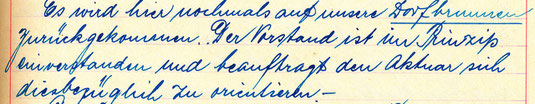 Es wird hier nochmals auf unsere Dorfbrunnen
zurückgekomenen.. Der Vorstand ist im Prinzip
einverstanden und beauftragt den Aktuar sich
diesbezüglich zu orientieren –